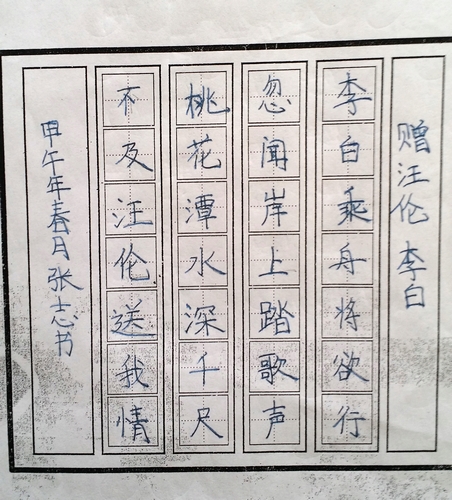 赠汪伦 李白
李白乘舟将欲行
忽闻岸上踏歌声
桃花潭水深千尺
不及汪伦送我情
甲午年春月张志书